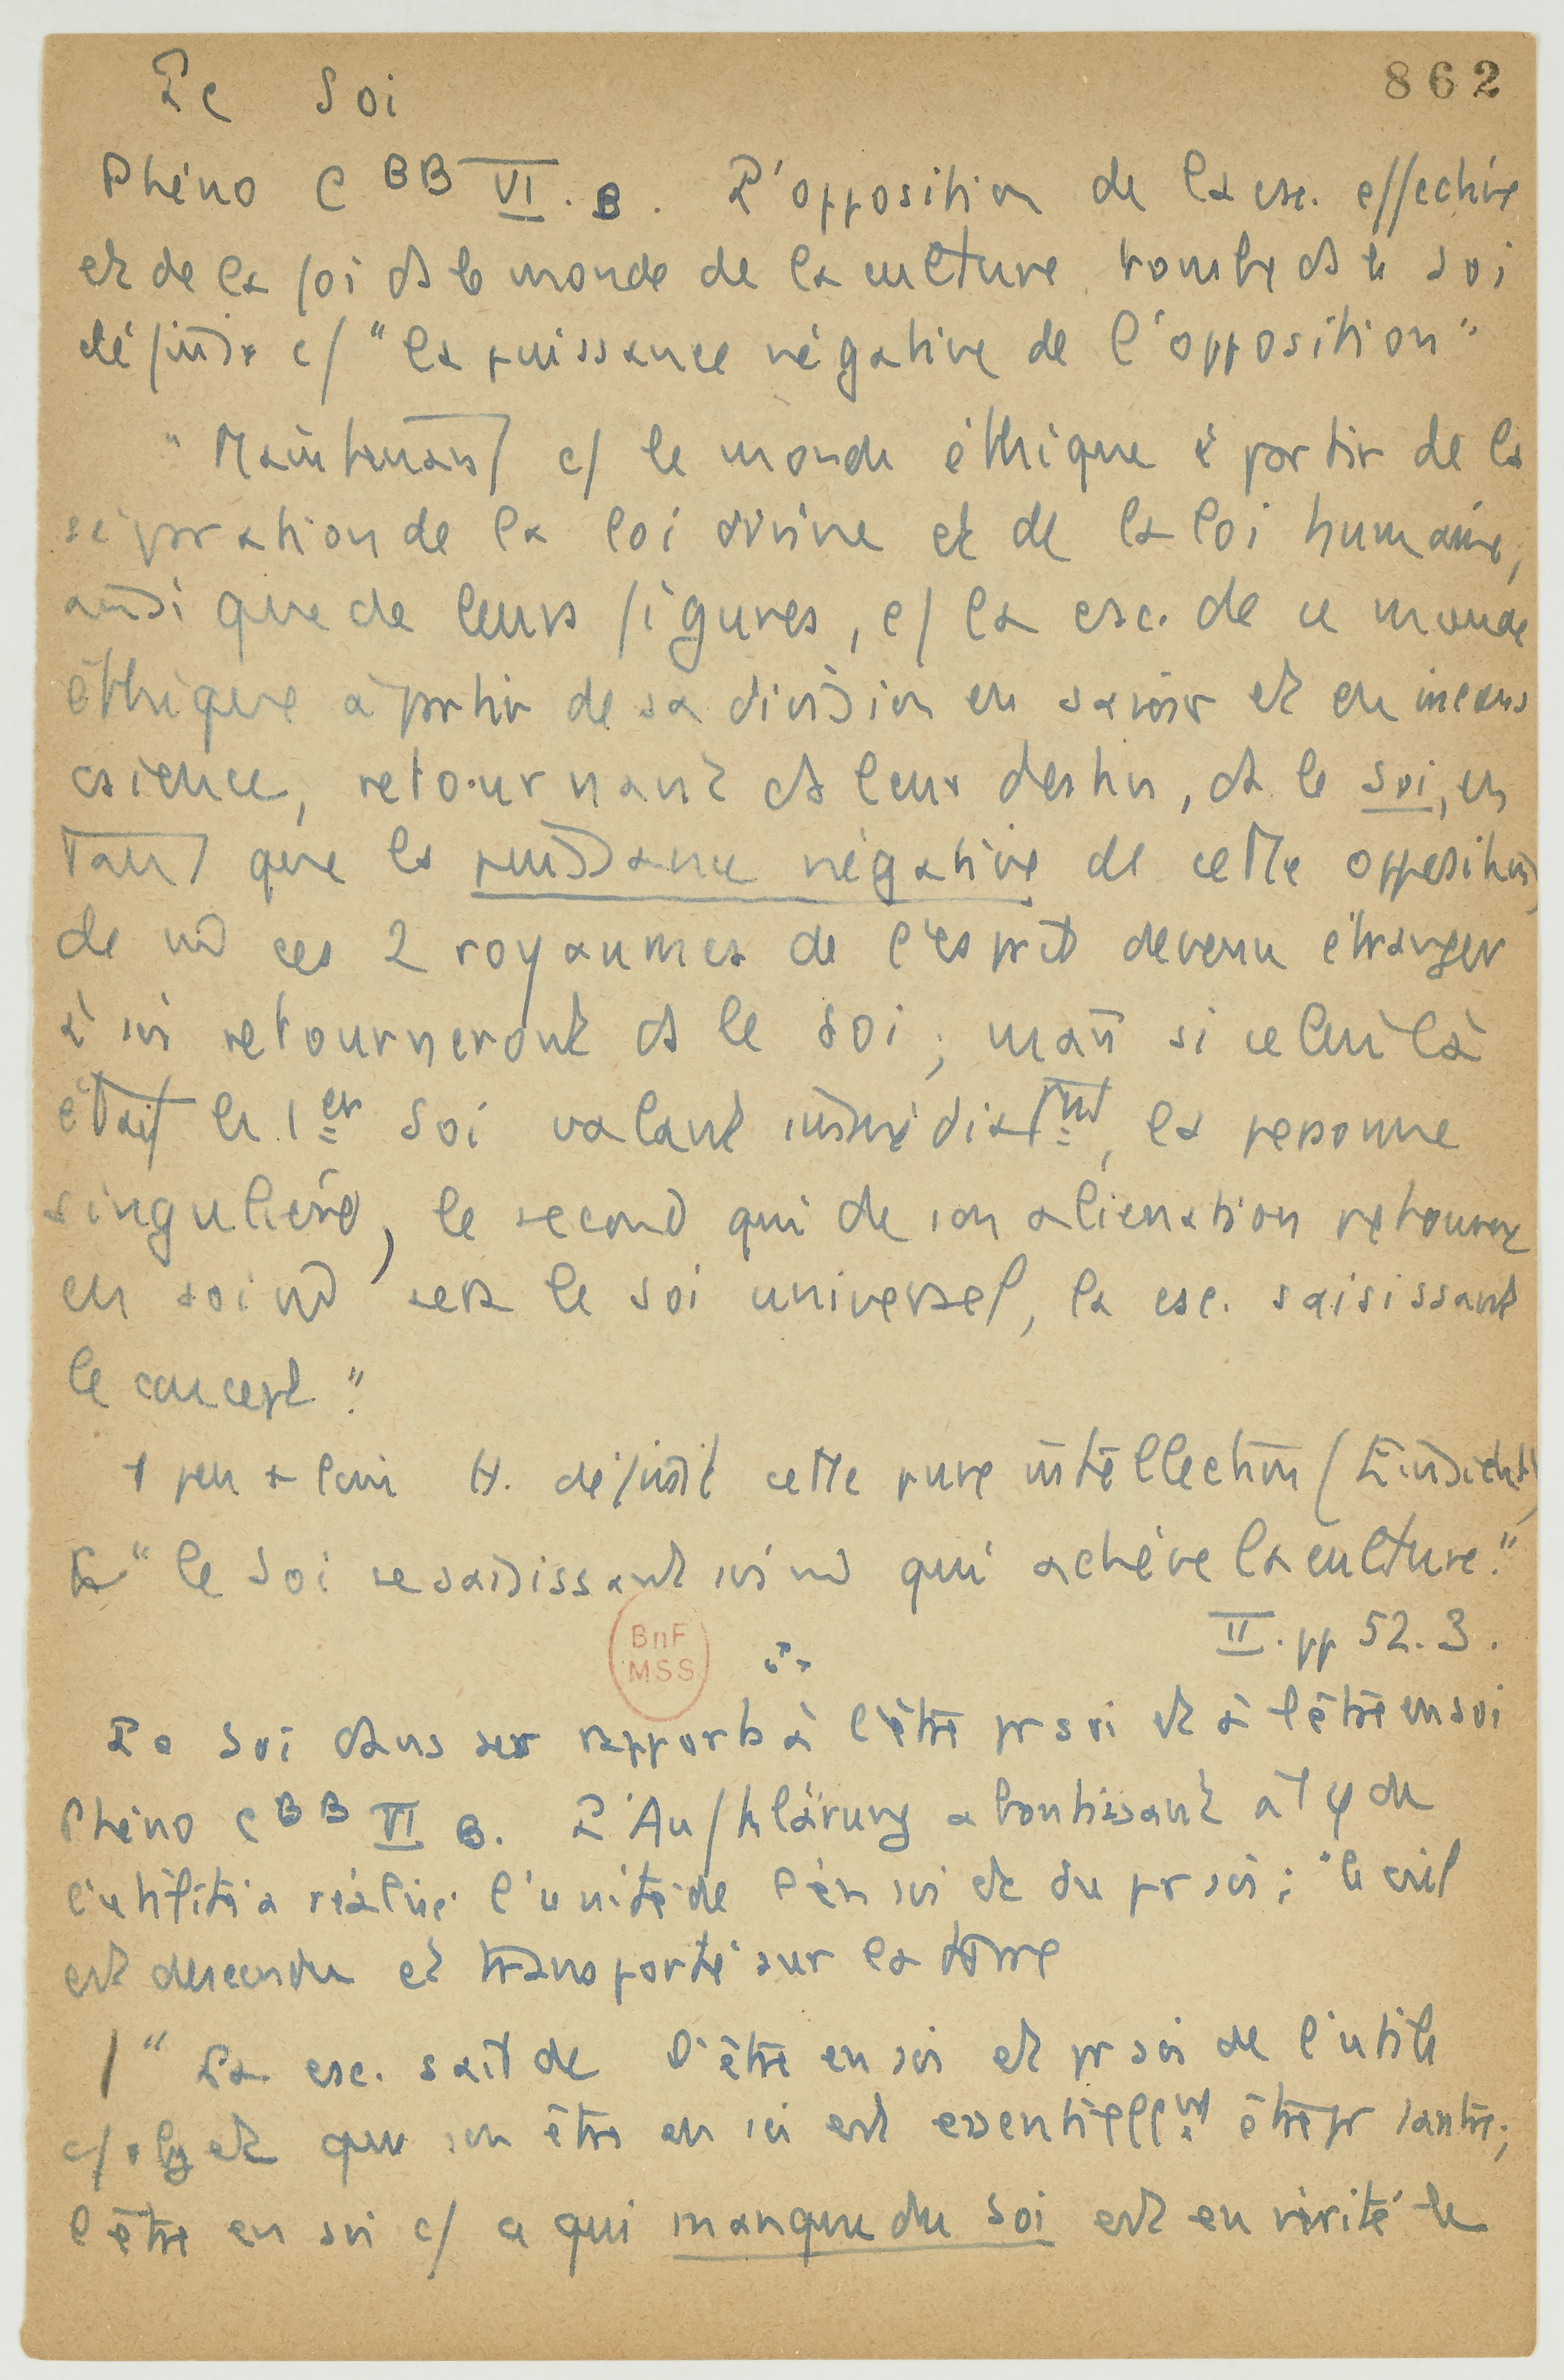 Le Soi
862
Phéno C BB VI. B. L'opposition de la csc. effective
et de la foi ds le monde de la culture tombe ds le soi
définie c/ "la puissance négative de l'opposition"
"Maintenant c/ le monde éthique à partir de la
séparation de la loi divine et de la loi humaine,
ainsi que de leurs figures, c/ la csc. de ce monde
éthique à partir de sa division en savoir et en incons
cience, retournant ds leur destin, ds le soi, en
tant que la puissance négative de cette opposition,
de m̂ ces 2 royaumes de l'esprit devenu étranger
à soi retourneront ds le soi ; mais si celui là
était le 1er soi valant immédiatmt, la personne
singulière, le second qui de son aliénation retourne
en soi m̂ sera le soi universel, la csc. saisissant
le concept."
1 peu + loin H. définit cette pure intellection (Einsicht)
"le Soi se saisissant soi m̂ qui achève la culture."
II. pp 52.3.
BnF
MSS
Le Soi dans ses rapports à l'être pr soi et à l'être en soi
Phéno C BB VI B. L'Aufklärung aboutissant à 1 φ de
l'utilité a réalisé l'unité de l'en soi et du pr soi ; "le ciel
est descendu et transporté sur la terre
/ " La csc. sait de l'être en soi et pr soi de l'utile
c/ objet que son être en soi est essentiellmt être pr l'autre ;
l'être en soi c/ ce qui manque du soi est en vérité le